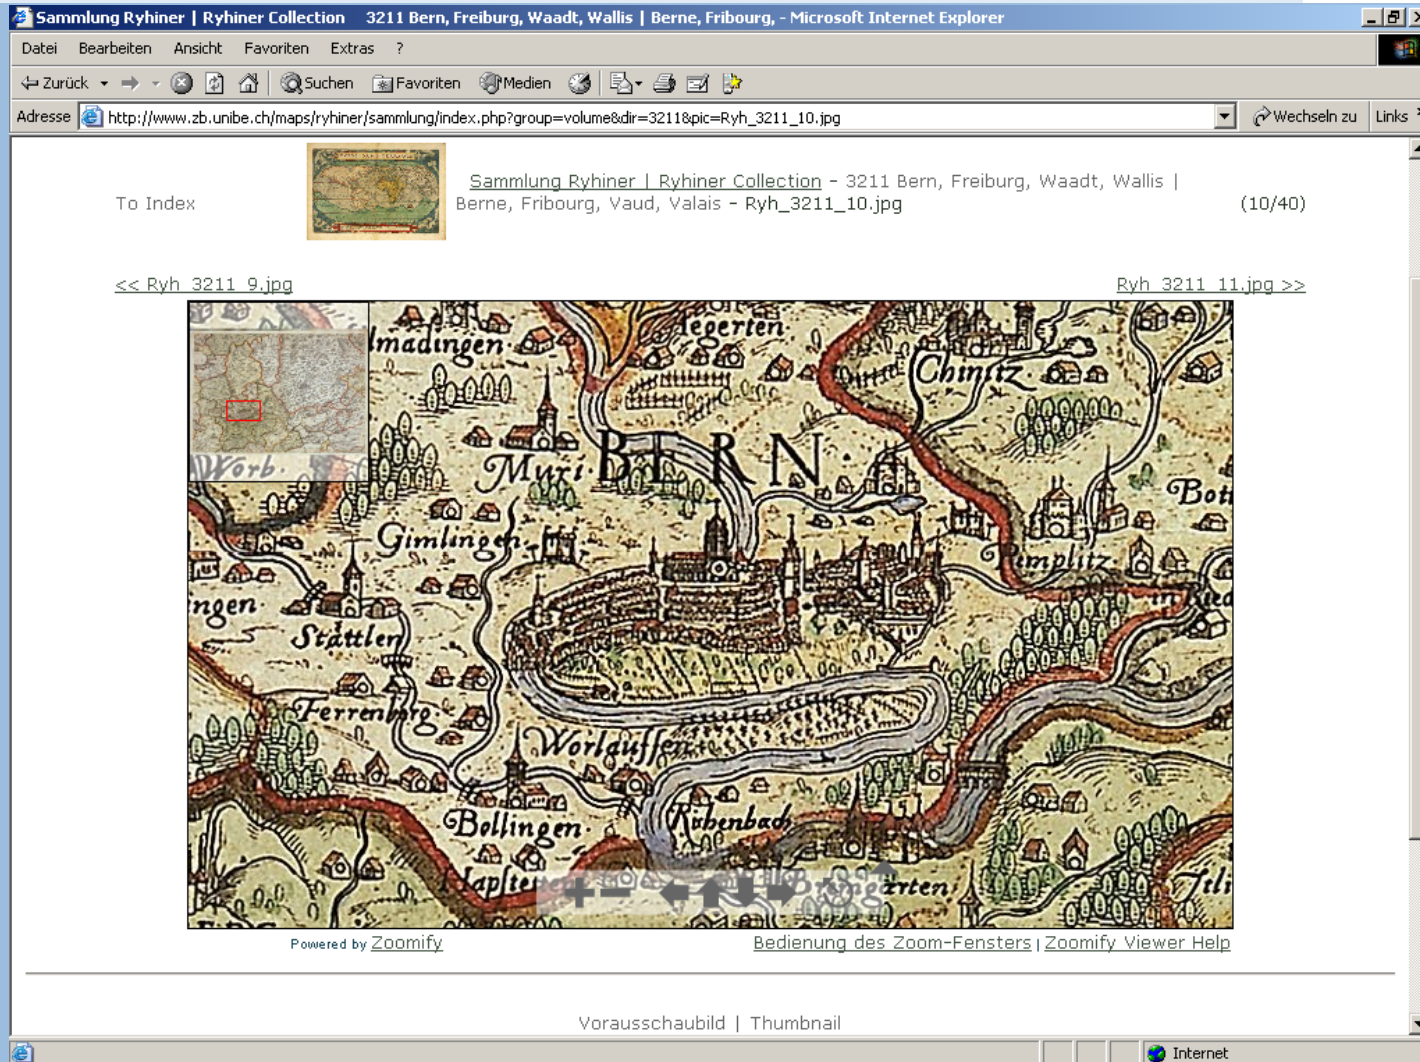 Sammlung Ryhiner | Ryhiner Collection 3211 Bern, Freiburg, Waadt, Wallis | Berne, Fribourg, - Microsoft Internet Explorer
Datei Bearbeiten Ansicht Favoriten Extras ?
Zurück Suchen Favoriten Medien
Adresse http://www.zb.unibe.ch/maps/ryhiner/sammlung/index.php?group=volume&dir=3211&pic=Ryh_3211_10.jpg Wechseln zu Links
To Index
Sammlung Ryhiner | Ryhiner Collection - 3211 Bern, Freiburg, Waadt, Wallis |
Berne, Fribourg, Vaud, Valais - Ryh_3211_10.jpg
(10/40)
<< Ryh_3211_9.jpg Ryh_3211_11.jpg >>
Tegerten.
lmadingen
Chinitz
Worb.
Muri.
BERN.
Gimlingen.
Pimplitz.
ngen.
Stättlen
Ferrenberg.
Worlauffen
Bollingen.
Richenbach
Powered by Zoomify
Bedienung des Zoom-Fensters | Zoomify Viewer Help
Vorausschaubild | Thumbnail
Internet